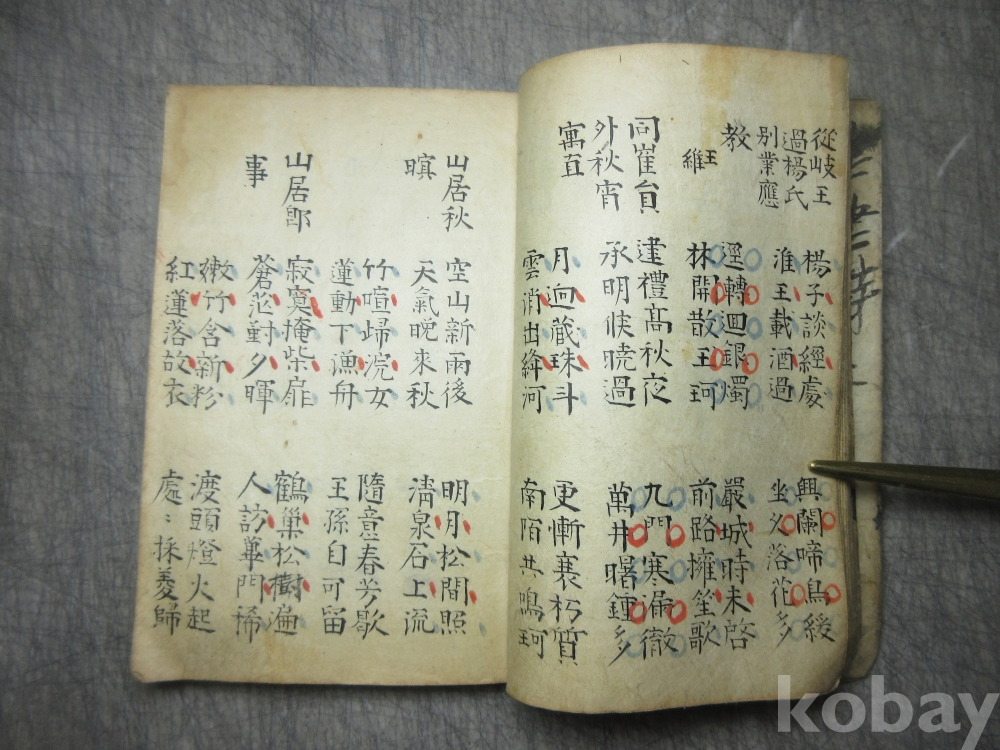 從岐王
過楊氏
別業應
教
王維
楊子談經處
淮王載酒過
興闌啼鳥緩
坐久落花多
逕轉迴銀燭
林開散王珂
嚴城時未啓
前路擁笙歌
同崔員
外秋宵
寓直
建禮高秋夜
承明候曉過
九門寒漏徹
萬井曙鍾多
月迥藏珠斗
雲消出絳河
更慚衰朽質
南陌共鳴珂
山居秋
暝
空山新雨後
天氣晚來秋
明月松間照
清泉石上流
竹喧歸浣女
蓮動下漁舟
隨意春芳歇
王孫自可留
山居即
事
寂寞掩柴扉
蒼茫對夕暉
鶴巢松樹遍
人訪蓽門稀
嫩竹含新粉
紅蓮落故衣
渡頭燈火起
處〻採菱歸
kobay